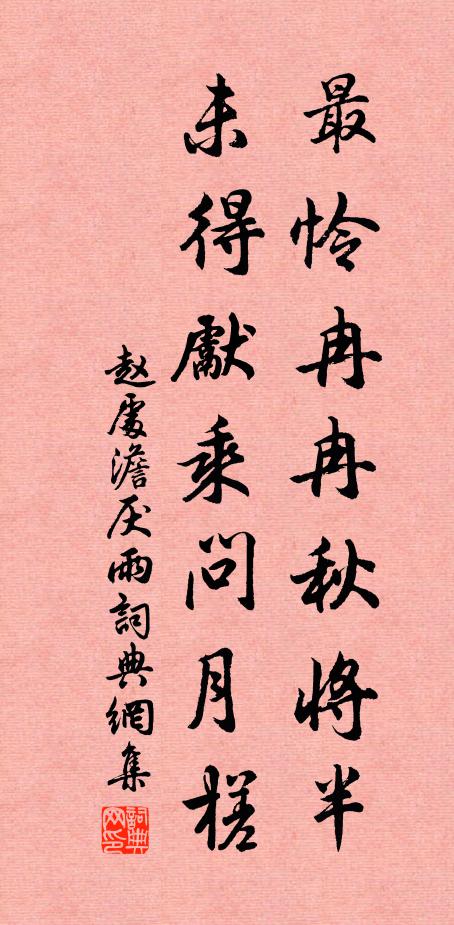 最怜冉冉秋将半
未得献乘问月槎
赵处澹厌雨词典网集
词典网印